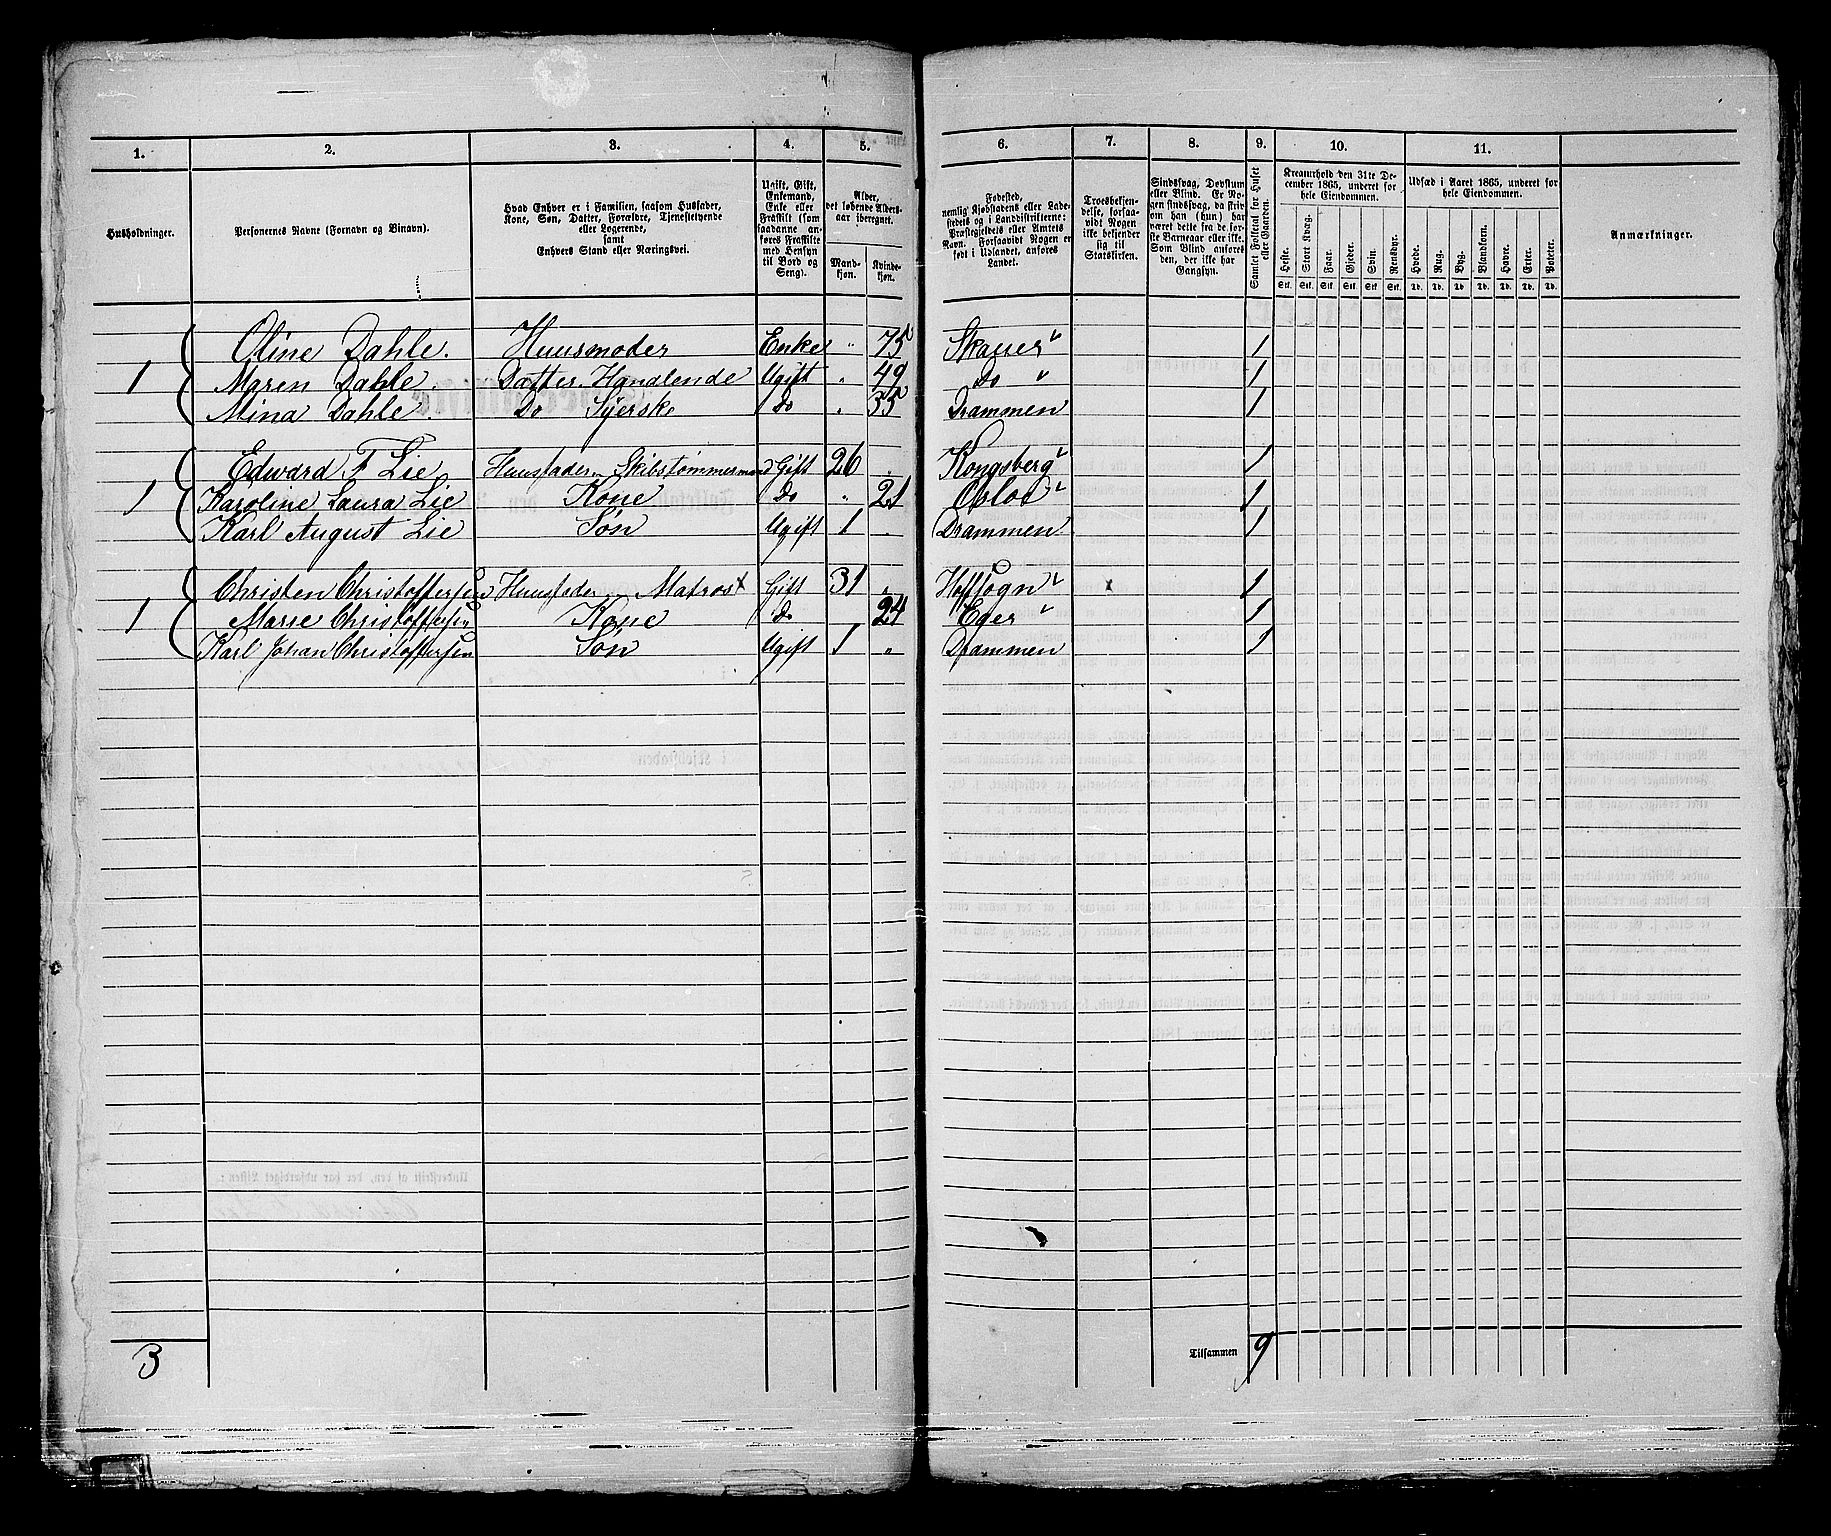 1. 2. 3. 4. 5. 6. 7. 8. 9. 10. 11.
Husholdninger.
Personernes Navne (Fornavn og Binavn).
Hvad Enhver er i Familien, saasom Husfader,
Kone, Søn, Datter, Forældre, Tjenestetyende
eller Logerende,
samt
Enhvers Stand eller Næringsvei.
Ugift, Gift,
Enkemand,
Enke eller
Fraskilt (som
saadanne anføres
Fraskilte
med Hensyn
til Bord og
Seng).
Alder,
det løbende Aldersaar
iberegnet.
Mandkjøn. Kvindekjøn.
Fødested,
nemlig Kjøbstadens eller Ladestedets
og i Landdistrikterne:
Præstegjeldets eller Amtets
Navn. Forsaavidt Nogen er
født i Udlandet, anføres
Landet.
Troesbekjendelse,
forsaavidt
Nogen ikke
bekjender
sig til
Statskirken.
Sindssvag, Døvstum
eller Blind. Er Nogen
sindssvag, da hvorvidt
han (hun) har
været dette fra de første
Barneaar eller ikke.
Som Blind anføres
den, der ikke har
Gangsyn.
Samlet Folketal for Huset
eller Gaarden.
Kreaturhold den 31te December
1865, underet for
hele Eiendommen.
Heste. Stort Kvæg. Faar. Gjeder. Svin. Rensdyr.
Stk. Stk. Stk. Stk. Stk. Stk.
Udsæd i Aaret 1865, underet for
hele Eiendommen.
Hvede. Rug. Byg. Blandkorn. Havre. Erter. Poteter.
Td. Td. Td. Td. Td. Td. Td.
Anmærkninger.
Oline Dahle. Huusmoder Enke " 75 Skauer 1
1 Maren Dahle. Datter. Handlende Ugift " 49 Do " 1
Mina Dahle. Do Syerske do " 35 Drammen 1
Edward F Lie Huusfader Skibstømmermand Gift 26 " Kongsberg 1
1 Karoline Laura Lie Kone do " 21 Osloe 1
Karl August Lie Søn Ugift 1 Drammen 1
Christen Christoffersen Huusfader Matros x Gift 31 " Hofsogn x 1
1 Marie Christoffersen Kone do 24 Eger 1
Karl Johan Christoffersen Søn Ugift 1 " Drammen 1
3 Tilsammen 9